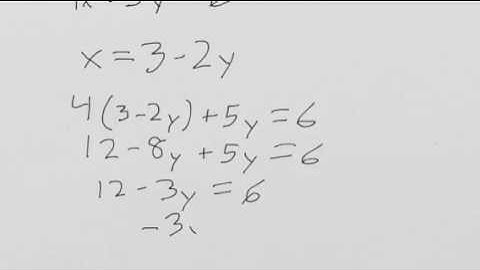 x = 3 - 2y
4(3-2y) + 5y = 6
12 - 8y + 5y = 6
12 - 3y = 6
-3